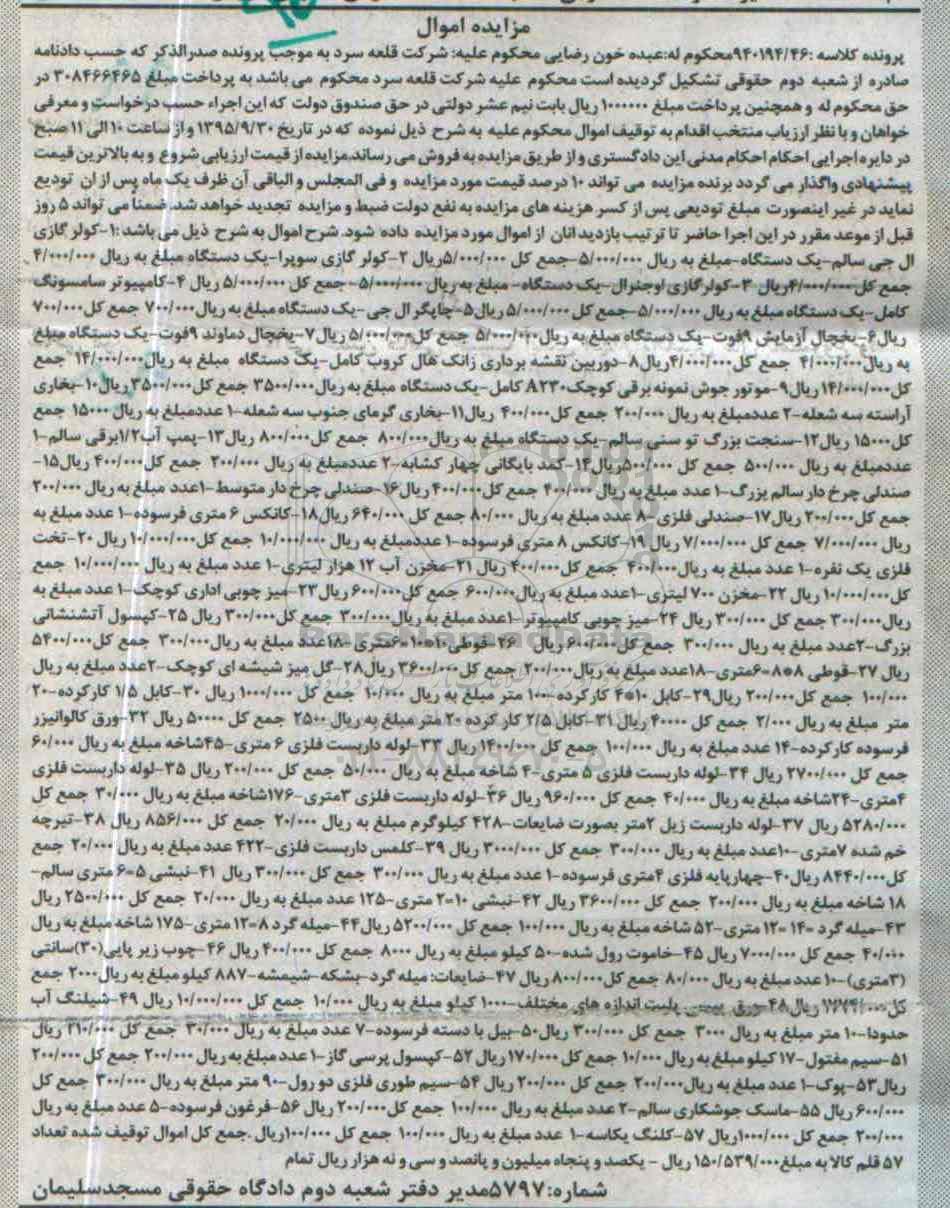 مزایده اموال
پرونده کلاسه :۹۴۰۱۹۴/۴۶محکوم له:عبده خون رضایی محکوم علیه: شرکت قلعه سرد به موجب پرونده صدرالذکر که حسب دادنامه
صادره از شعبه دوم حقوقی تشکیل گردیده است محکوم علیه شرکت قلعه سرد محکوم می باشد به پرداخت مبلغ ۳۰۸۴۶۶۴۶۵ در
حق محکوم له و همچنین پرداخت مبلغ ۱۰۰۰۰۰۰ ریال بابت نیم عشر دولتی در حق صندوق دولت که این اجراء حسب درخواست و معرفی
خواهان و با نظر ارزیاب منتخب اقدام به توقیف اموال محکوم علیه به شرح ذیل نموده که در تاریخ ۱۳۹۵/۹/۳۰ و از ساعت ۱۰ الی ۱۱ صبح
در دایره اجرایی احکام احکام مدنی این دادگستری و از طریق مزایده به فروش می رساند.مزایده از قیمت ارزیابی شروع و به بالاترین قیمت
پیشنهادی واگذار می گردد برنده مزایده می تواند ۱۰ درصد قیمت مورد مزایده و فی المجلس و الباقی آن ظرف یک ماه پس از ان تودیع
نماید در غیر اینصورت مبلغ تودیعی پس از کسر هزینه های مزایده به نفع دولت ضبط و مزایده تجدید خواهد شد. ضمنا می تواند ۵ روز
قبل از موعد مقرر در این اجرا حاضر تا ترتیب بازدید انان از اموال مورد مزایده داده شود. شرح اموال به شرح ذیل می باشد :۱-کولر گازی
ال جی سالم-یک دستگاه-مبلغ به ریال ۵/۰۰۰/۰۰۰-جمع کل ۵/۰۰۰/۰۰۰ریال ۲-کولر گازی سوپرا-یک دستگاه مبلغ به ریال ۴/۰۰۰/۰۰۰
جمع کل-۴/۰۰۰/۰۰۰ریال ۳-کولرگازی اوجنرال-یک دستگاه- مبلغ به ریال ۵/۰۰۰/۰۰۰-جمع کل ۵/۰۰۰/۰۰۰ ریال ۴-کامپیوتر سامسونگ
کامل-یک دستگاه مبلغ به ریال ۵/۰۰۰/۰۰۰-جمع کل ۵/۰۰۰/۰۰۰ ریال۵-چاپگر ال جی-یک دستگاه مبلغ به ریال۷۰۰/۰۰۰ جمع کل۷۰۰/۰۰۰
ریال۶-یخچال آزمایش ۹فوت-یک دستگاه مبلغ به ریال۵/۰۰۰/۰۰۰ جمع کل۵/۰۰۰/۰۰۰ ریال۷-یخچال دماوند ۹فوت-یک دستگاه مبلغ
به ریال۴/۰۰۰/۰۰۰ جمع کل۴/۰۰۰/۰۰۰ریال۸-دوربین نقشه برداری زانک هال کروب کامل-یک دستگاه مبلغ به ریال۱۴/۰۰۰/۰۰۰ جمع
کل۱۴/۰۰۰/۰۰۰ریال۹-موتور جوش نمونه برقی کوچکA۲۳۰ کامل-یک دستگاه مبلغ به ریال۳۵۰۰/۰۰۰ جمع کل۳۵۰۰/۰۰۰ریال۱۰-بخاری
آراسته سه شعله-۲ عددمبلغ به ریال ۲۰۰/۰۰۰ جمع کل۴۰۰/۰۰۰ ریال۱۱-بخاری گرمای جنوب سه شعله-۱ عددمبلغ به ریال ۱۵۰۰۰ جمع
کل۱۵۰۰۰ ریال۱۲-سنجت بزرگ تو سنی سالم-یک دستگاه مبلغ به ریال۸۰۰/۰۰۰ جمع کل۸۰۰/۰۰۰ ریال۱۳-پمپ آب۱/۲برقی سالم-۱
عددمبلغ به ریال ۵۰۰/۰۰۰ جمع کل ۵۰۰/۰۰۰ریال۱۴-کمد بایگانی چهار کشابه-۲ عددمبلغ به ریال ۲۰۰/۰۰۰ جمع کل۴۰۰/۰۰۰ ریال۱۵-
صندلی چرخ دار سالم بزرگ-۱ عدد مبلغ به ریال ۴۰۰/۰۰۰ جمع کل۴۰۰/۰۰۰ ریال۱۶-صندلی چرخ دار متوسط-۱عدد مبلغ به ریال ۲۰۰/۰۰۰
جمع کل۲۰۰/۰۰۰ ریال۱۷-صندلی فلزی-۸ عدد مبلغ به ریال ۸۰/۰۰۰ جمع کل ۶۴۰/۰۰۰ ریال۱۸-کانکس ۶ متری فرسوده-۱ عدد مبلغ به
ریال ۷/۰۰۰/۰۰۰ جمع کل ۷/۰۰۰/۰۰۰ ریال ۱۹-کانکس ۸ متری فرسوده-۱ عددمبلغ به ریال ۱۰/۰۰۰/۰۰۰ جمع کل۱۰/۰۰۰/۰۰۰ ریال ۲۰-تخت
فلزی یک نفره-۱ عدد مبلغ به ریال۴۰۰/۰۰۰ جمع کل۴۰۰/۰۰۰ ریال ۲۱-مخزن آب ۱۲ هزار لیتری-۱ عدد مبلغ به ریال ۱۰/۰۰۰/۰۰۰ جمع
کل۱۰/۰۰۰/۰۰۰ ریال ۲۲-مخزن ۷۰۰ لیتری-۱عدد مبلغ به ریال۶۰۰/۰۰۰ جمع کل۶۰۰/۰۰۰ ریال۲۳-میز چوبی اداری کوچک-۱ عدد مبلغ به
ریال۳۰۰/۰۰۰ جمع کل ۳۰۰/۰۰۰ ریال ۲۴-میز چوبی کامپیوتر-۱عدد مبلغ به ریال۳۰۰/۰۰۰ جمع کل۳۰۰/۰۰۰ ریال ۲۵-کپسول آتشنشانی
بزرگ-۲عدد مبلغ به ریال ۳۰۰/۰۰۰ جمع کل۶۰۰/۰۰۰ ریال ۲۶-قوطی۱۰*۱۰=۶متری-۱۸عدد مبلغ به ریال۳۰۰/۰۰۰ جمع کل۵۴۰۰/۰۰۰
ریال ۲۷-قوطی ۸*۸=۶متری-۱۸عدد مبلغ به ریال۲۰۰/۰۰۰ جمع کل۳۶۰۰/۰۰۰ ریال۲۸-گل میز شیشه ای کوچک-۲عدد مبلغ به ریال
۱۰۰/۰۰۰ جمع کل۲۰۰/۰۰۰ ریال۲۹-کابل ۱۰*۴ کارکرده-۱۰۰ متر مبلغ به ریال ۱۰/۰۰۰ جمع کل ۱۰۰۰/۰۰۰ ریال ۳۰-کابل ۱/۵ کارکرده-۲۰
متر مبلغ به ریال ۲/۰۰۰ جمع کل ۴۰۰۰۰ ریال ۳۱-کابل ۲/۵ کار کرده ۲۰ متر مبلغ به ریال ۲۵۰۰ جمع کل ۵۰۰۰۰ ریال ۳۲-ورق کالوانیزر
فرسوده کارکرده-۱۴ عدد مبلغ به ریال ۱۰۰/۰۰۰ جمع کل ۱۴۰۰/۰۰۰ ریال ۳۳-لوله داربست فلزی ۶ متری-۴۵شاخه مبلغ به ریال ۶۰/۰۰۰
جمع کل ۲۷۰۰/۰۰۰ ریال ۳۴-لوله داربست فلزی ۵ متری-۴ شاخه مبلغ به ریال ۵۰/۰۰۰ جمع کل ۲۰۰/۰۰۰ ریال ۳۵-لوله داربست فلزی
۴متری-۲۴شاخه مبلغ به ریال ۴۰/۰۰۰ جمع کل ۹۶۰/۰۰۰ ریال ۳۶-لوله داربست فلزی ۳متری-۱۷۶شاخه مبلغ به ریال ۳۰/۰۰۰ جمع کل
۵۲۸۰/۰۰۰ ریال ۳۷-لوله داربست زیل ۲متر بصورت ضایعات-۴۲۸ کیلوگرم مبلغ به ریال ۲۰/۰۰۰ جمع کل ۸۵۶/۰۰۰ ریال ۳۸-تیرچه
خم شده ۷متری-۱۰عدد مبلغ به ریال ۳۰۰/۰۰۰ جمع کل ۳۰۰۰/۰۰۰ ریال ۳۹-کلمس داربست فلزی-۴۲۲ عدد مبلغ به ریال ۲۰/۰۰۰ جمع
کل۸۴۴۰/۰۰۰ ریال۴۰-چهارپایه فلزی ۴متری فرسوده-۱ عدد مبلغ به ریال ۳۰۰/۰۰۰ جمع کل ۳۰۰/۰۰۰ ریال ۴۱-نبشی ۵=۶ متری سالم-
۱۸ شاخه مبلغ به ریال ۲۰۰/۰۰۰ جمع کل ۳۶۰۰/۰۰۰ ریال ۴۲-نبشی ۱۰=۲ متری-۱۲۵ عدد مبلغ به ریال ۲۰/۰۰۰ جمع کل ۲۵۰۰/۰۰۰ ریال
۴۳-میله گرد =۱۴=۱۲ متری-۵۲ شاخه مبلغ به ریال ۱۰۰/۰۰۰ جمع کل ۵۲۰۰/۰۰۰ ریال۴۴-میله گرد ۸=۱۲ متری-۱۷۵ شاخه مبلغ به ریال
۴۰/۰۰۰ جمع کل ۷۰۰۰/۰۰۰ ریال ۴۵-خاموت رول شده-۵۰ کیلو مبلغ به ریال ۸۰۰۰ جمع کل ۴۰۰/۰۰۰ ریال ۴۶-چوب زیر پایی(۳۰)سانتی
(۳متری)-۱۰ عدد مبلغ به ریال ۸۰/۰۰۰ جمع کل۸۰۰/۰۰۰ ریال ۴۷-ضایعات: میله گرد-بشکه-شیمشه-۸۸۷ کیلو مبلغ به ریال۲۰۰۰ جمع
کل ریال۴۸-ورق پلیت اندازه های مختلف-۱۰۰۰ کیلو مبلغ به ریال ۱۰/۰۰۰ جمع کل ۱۰/۰۰۰/۰۰۰ ریال ۴۹-شیلنگ آب
حدودا-۱۰ متر مبلغ به ریال ۳۰۰۰ جمع کل ۳۰۰/۰۰۰ ریال۵۰-بیل با دسته فرسوده-۷ عدد مبلغ به ریال ۳۰/۰۰۰ جمع کل ۲۱۰/۰۰۰ ریال
۵۱-سیم مفتول-۱۷ کیلو مبلغ به ریال ۱۰/۰۰۰ جمع کل ۱۷۰/۰۰۰ ریال ۵۲-کپسول پرسی گاز-۱ عدد مبلغ به ریال ۲۰۰/۰۰۰ جمع کل ۲۰۰/۰۰۰
ریال۵۳-پوک-۱ عدد مبلغ به ریال۲۰۰/۰۰۰ جمع کل ۲۰۰/۰۰۰ ریال ۵۴-سیم طوری فلزی دو رول-۹۰ متر مبلغ به ریال ۳۰۰/۰۰۰ جمع کل
۶۰۰/۰۰۰ ریال ۵۵-ماسک جوشکاری سالم-۲ عدد مبلغ به ریال ۱۰۰/۰۰۰ جمع کل۲۰۰/۰۰۰ ریال ۵۶-فرغون فرسوده-۵ عدد مبلغ به ریال
۲۰۰/۰۰۰ جمع کل ۱۰۰۰/۰۰۰ریال ۵۷-کلنگ یکاسه-۱ عدد مبلغ به ریال ۱۰۰/۰۰۰ جمع کل ۱۰۰/۰۰۰ریال .جمع کل اموال توقیف شده تعداد
۵۷ قلم کالا به مبلغ۱۵۰/۵۳۹/۰۰۰ ریال - یکصد و پنجاه میلیون و پانصد و سی و نه هزار ریال تمام
شماره:۵۷۹۷مدیر دفتر شعبه دوم دادگاه حقوقی مسجدسلیمان